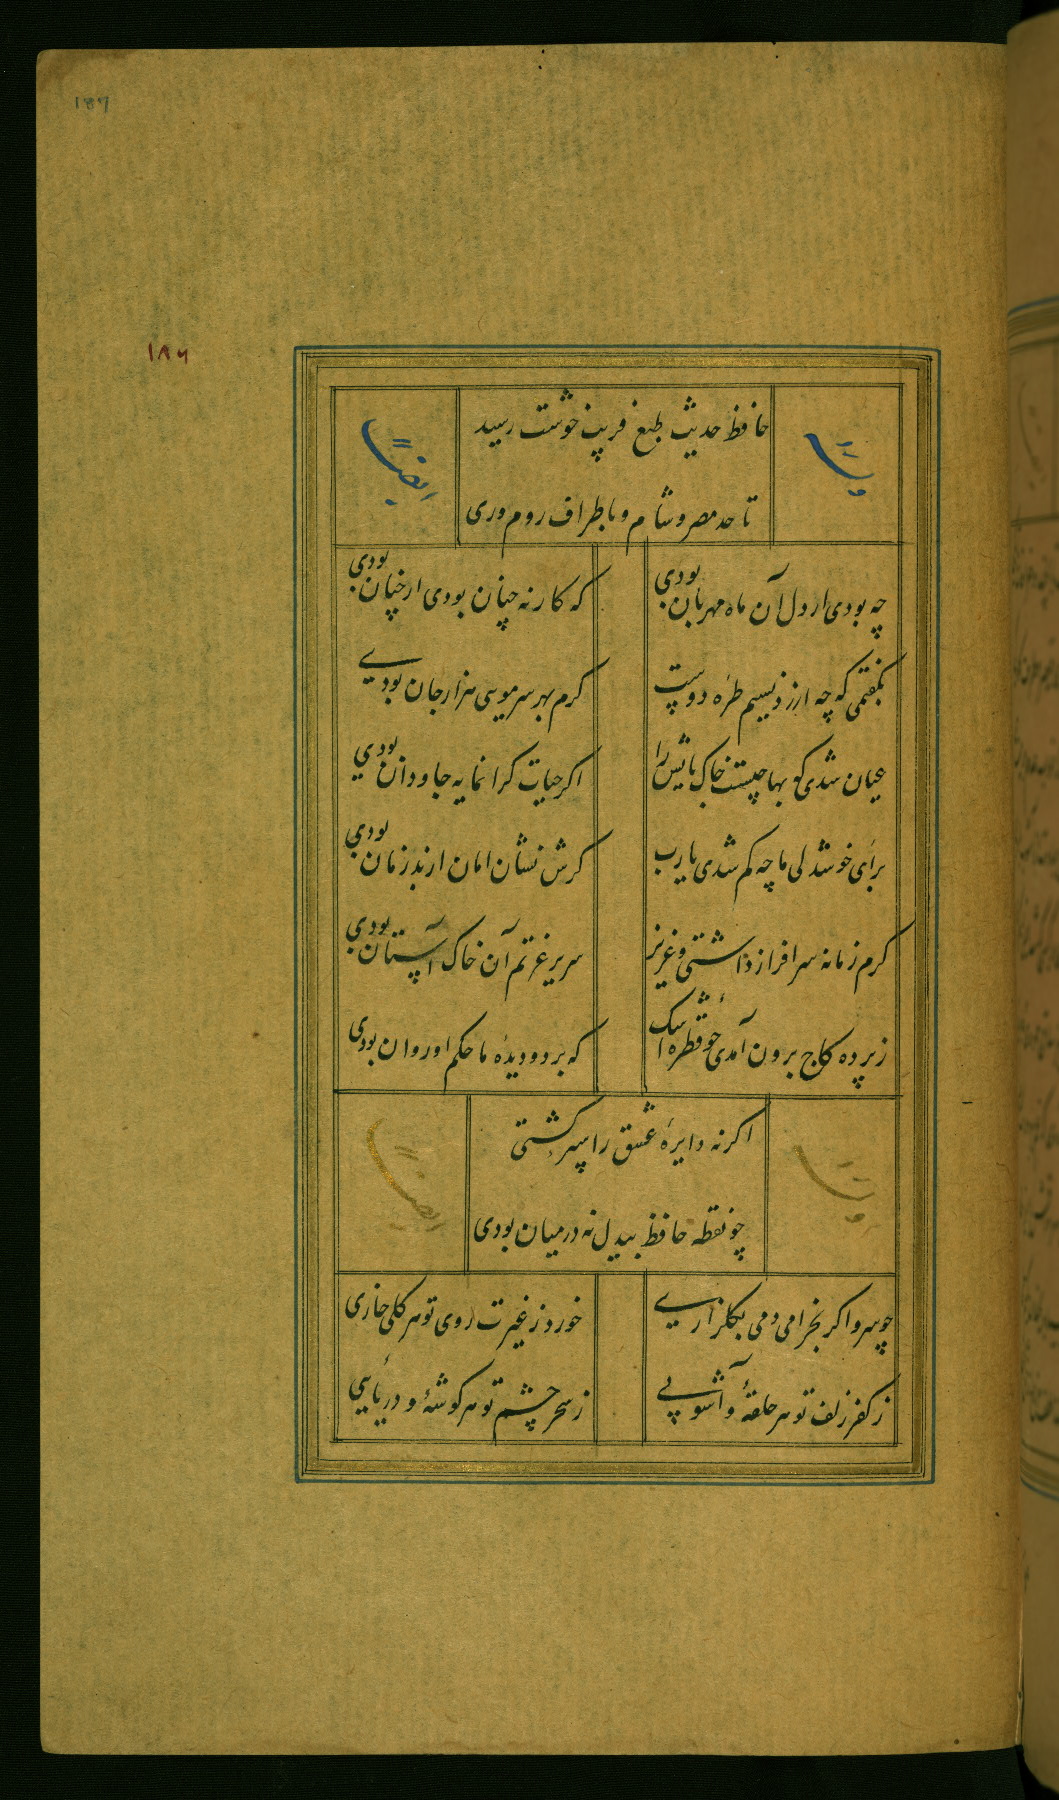 187
۱۸۶
حافظ حدیث طبع فریب خوشت رسید
وله
ایضاً
تا حد مصر و شام و باطراف روم و ری
چه بودی ار دل آن ماه مهربان بودی
که کار نه چنان بودی ار چنان بودی
بگفتمی که چه ارزد نسیم طره دوست
کرم بهر سر مویی هزار جان بودی
عیان شدی که بها چیست خاک پایش را
اکر حیات کرانمایه جاودان بودی
برای خوشدلی ما چه کم شدی یا رب
کرش نشان امان از بد زمان بودی
کرم زمانه سرافراز داشتی و عزیز
سریر عزتم آن خاک آستان بودی
ز پرده کاج برون آمدی چو قطره اشک
که بر دو دیدهٔ ما حکم او روان بودی
اکر نه دایرهٔ عشق راه بستی
ایضاً
چو نقطه حافظ بیدل نه درمیان بودی
چو سرو اکر بخرامی دمی بکلزاری
خورد ز غیرت روی تو هر کلی خاری
ز کفر زلف تو هر حلقهٔ و آشوبی
ز سحر چشم تو هر کوشهٔ و